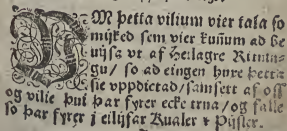 UM þetta vilium vier tala so
mijked sem vier kunum ad be
vijsa vt af Heilagre Ritnin-
gu / so ad eingen hnre þetta
sie vppdictad / samsett af oss
og vilie þui þar fyrer ecke trua / og falle
so þar fyrer i eilijfar Kualer & Pijsler.